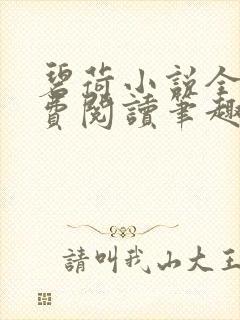 碧荷小說全
費閱讀筆趣
請叫我山大王